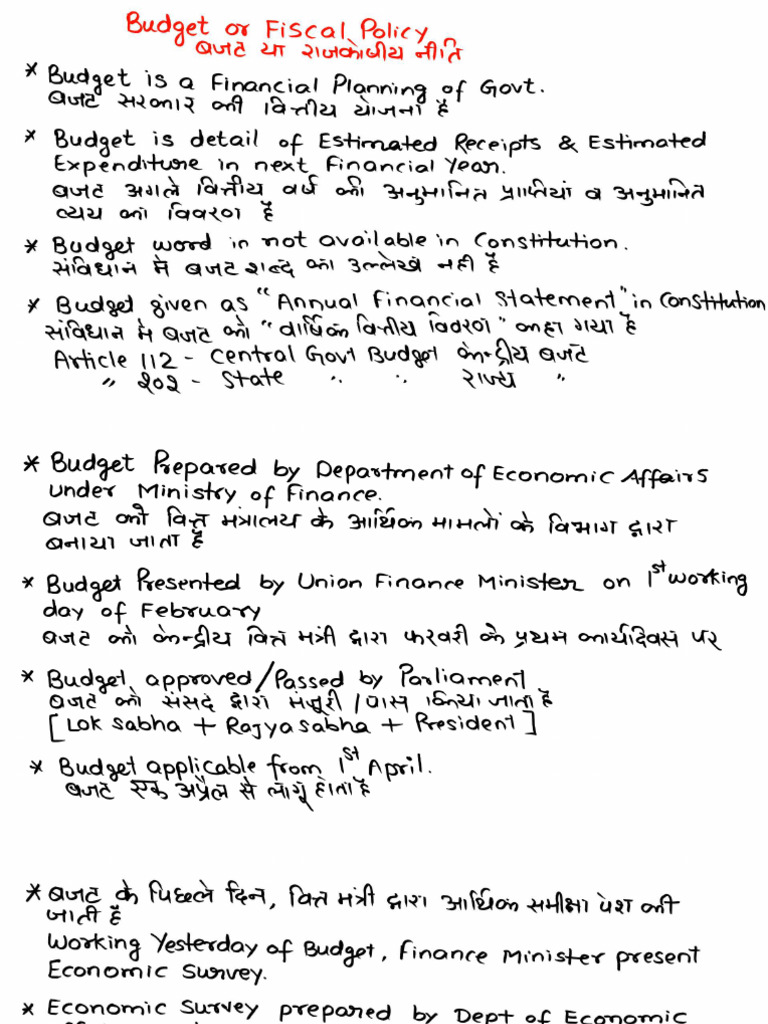 Budget or Fiscal Policy
बजट या राजकोषीय नीति
* Budget is a Financial Planning of Govt.
बजट सरकार की वित्तीय योजना है
* Budget is detail of Estimated Receipts & Estimated
Expenditure in next Financial Year.
बजट अगले वित्तीय वर्ष की अनुमानित प्राप्तियां व अनुमानित
व्यय का विवरण है
* Budget word in not available in Constitution.
संविधान मे बजट शब्द का उल्लेख नही है
* Budget given as "Annual Financial Statement" in Constitution
संविधान मे बजट को "वार्षिक वित्तीय विवरण" कहा गया है
Article 112 - Central Govt Budget केन्द्रीय बजट
" 202 - State " " राज्य "
* Budget Prepared by Department of Economic Affairs
under Ministry of Finance.
बजट को वित्त मंत्रालय के आर्थिक मामलों के विभाग द्वारा
बनाया जाता है
* Budget Presented by Union Finance Minister on 1st working
day of February
बजट को केन्द्रीय वित्त मंत्री द्वारा फरवरी के प्रथम कार्यदिवस पर
* Budget approved/Passed by Parliament
बजट को संसद द्वारा मंजूरी/पास किया जाता है
[Lok Sabha + Rajyasabha + President]
* Budget applicable from 1st April.
बजट एक अप्रैल से लागू होता है
* बजट के पिछले दिन, वित्त मंत्री द्वारा आर्थिक समीक्षा पेश की
जाती है
Working Yesterday of Budget, Finance Minister present
Economic Survey.
* Economic Survey prepared by Dept of Economic